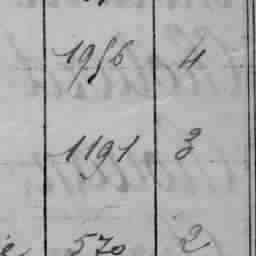 1956 4
1191 3
570 2